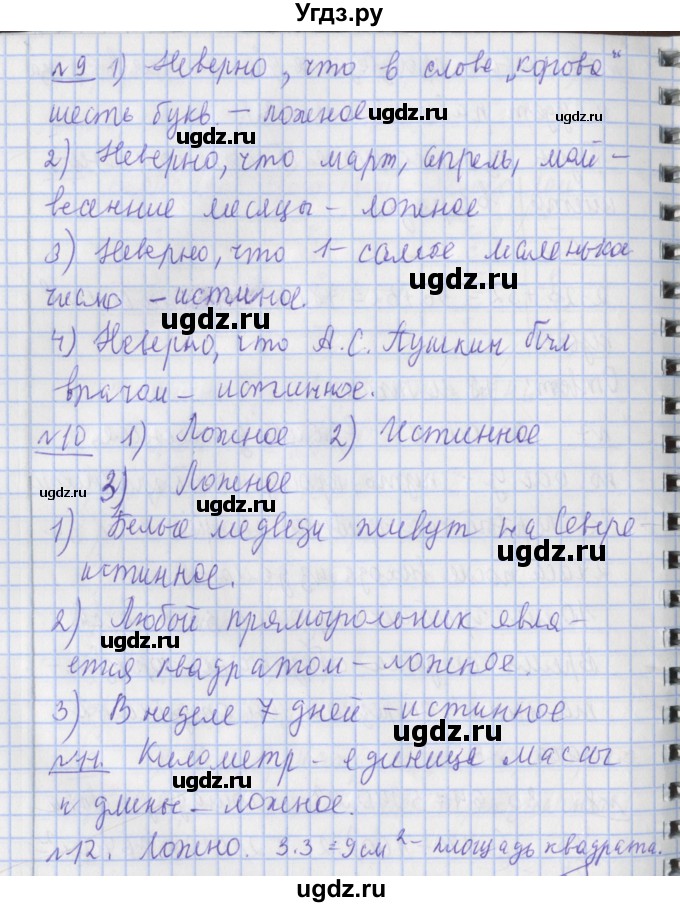 Угдз.ру
№9 1) Неверно, что в слове „корова“
шесть букв – ложное
ugdz.ru ugdz.ru
2) Неверно, что март, апрель, май –
весенние месяцы – ложное
ugdz.ru ugdz.ru
3) Неверно, что 1 – самое маленькое
число – истиное.
ugdz.ru
4) Неверно, что А.С. Пушкин был
врачом – истинное.
ugdz.ru ugdz.ru
№10 1) Ложное 2) Истинное
ugdz.ru 3) Ложное
ugdz.ru
1) Белые медведи живут на Севере –
истинное.
ugdz.ru ugdz.ru
2) Любой прямоугольник явля-
ется квадратом – ложное.
ugdz.ru
3) В неделе 7 дней – истинное
ugdz.ru
№11. Километр – единица массы
ugdz.ru
и длины – ложное.
ugdz.ru
№12. Ложно. 3·3=9см² – площадь квадрата.
ugdz.ru